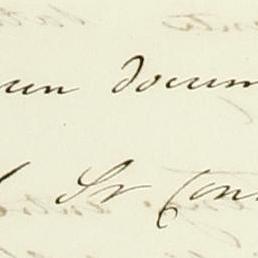 un docum
Sr Con